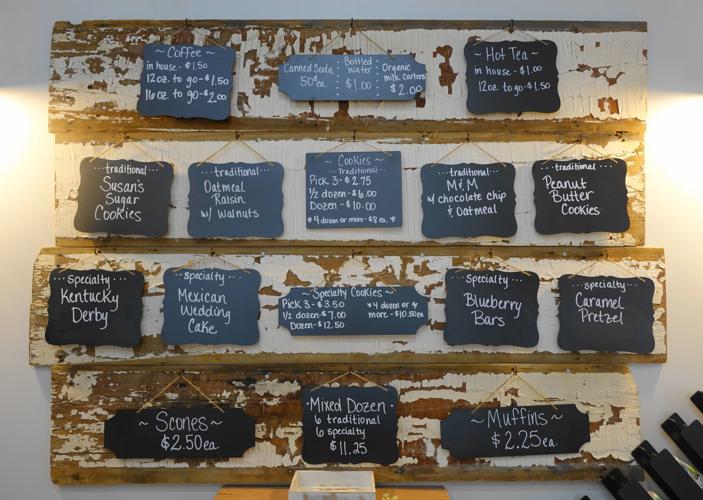 ~ Coffee ~
in house - $1.50
12oz. to go - $1.50
16oz. to go - $2.00
Canned Soda
50¢ ea.
Bottled
Water
$1.00
Organic
milk cartons
$2.00
~ Hot Tea ~
in house - $1.00
12oz to go - $1.50
...traditional...
Susan's
Sugar
Cookies
...traditional...
Oatmeal
Raisin
w/ Walnuts
~ Cookies ~
Traditional
Pick 3 - $2.75
1/2 dozen - $6.00
Dozen - $10.00
* 4 dozen or more - $8 ea. *
...traditional...
M&M
w/ chocolate chip
& Oatmeal
...traditional...
Peanut
Butter
Cookies
...specialty...
Kentucky
Derby
...specialty...
Mexican
Wedding
Cake
~ Specialty Cookies ~
Pick 3 - $3.50
1/2 dozen - $7.00
Dozen - $12.50
* 4 dozen or
more - $10.50 ea
...specialty...
Blueberry
Bars
...specialty...
Caramel
Pretzel
~ Scones ~
$2.50 ea
Mixed Dozen
6 traditional
6 specialty
$11.25
~ Muffins ~
$2.25 ea.